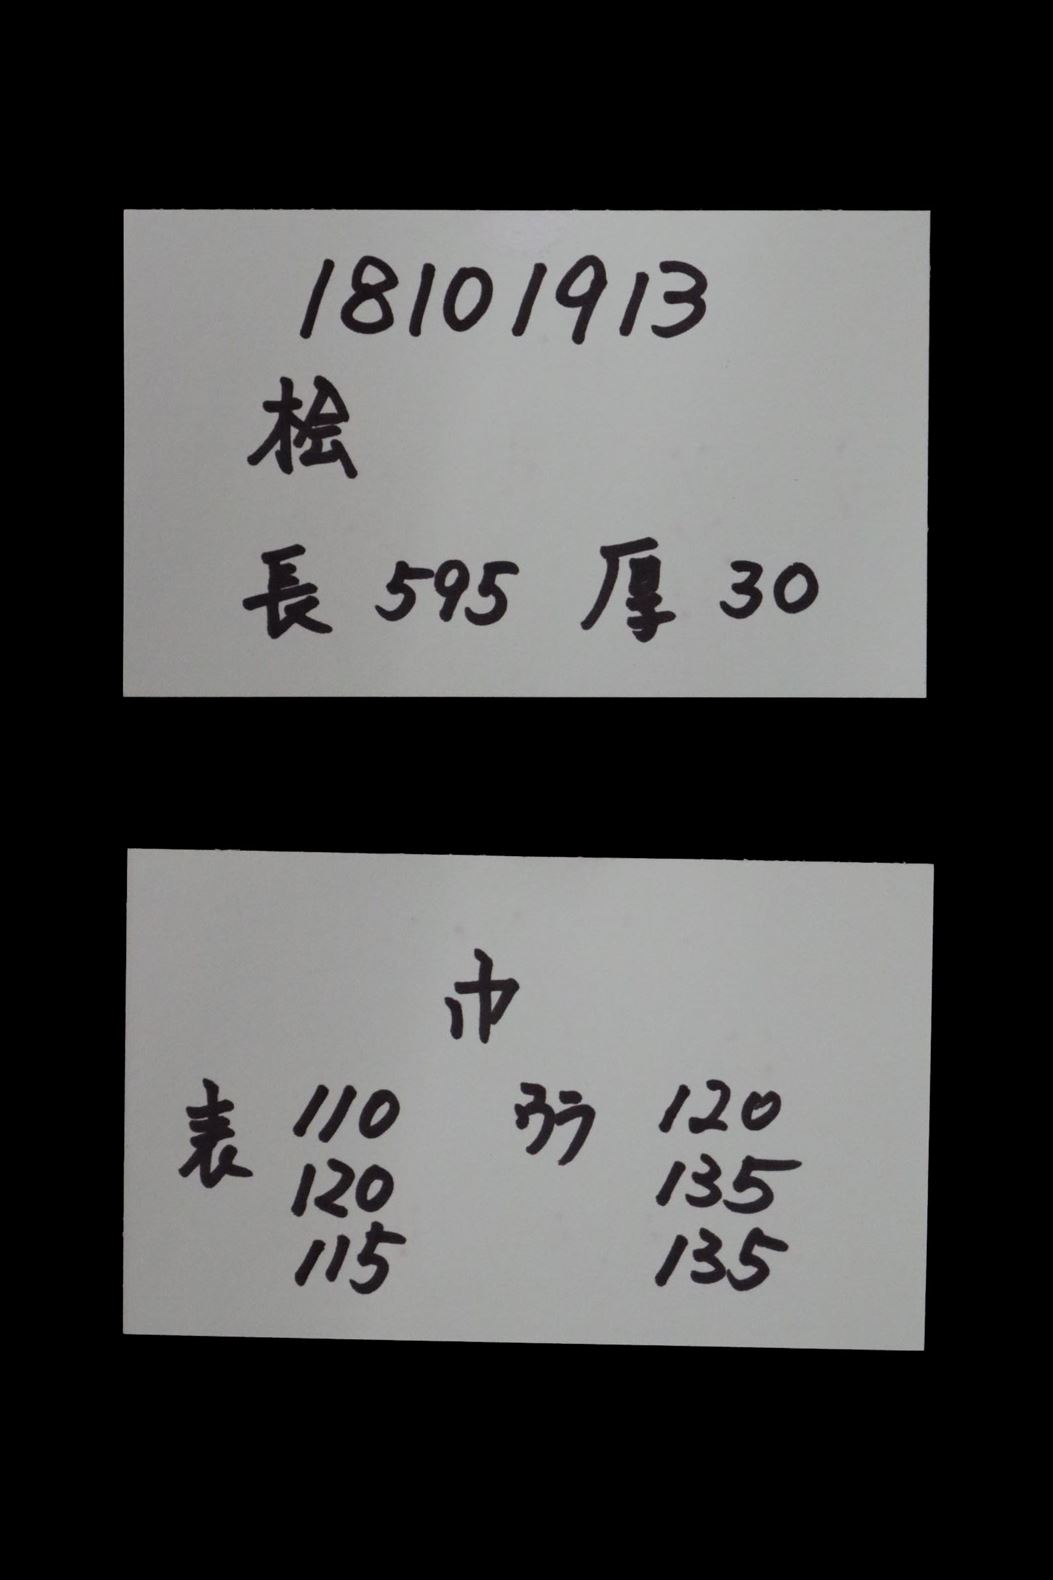 18101913
桧
長 595 厚 30
巾
表 110 ウラ 120
120 135
115 135